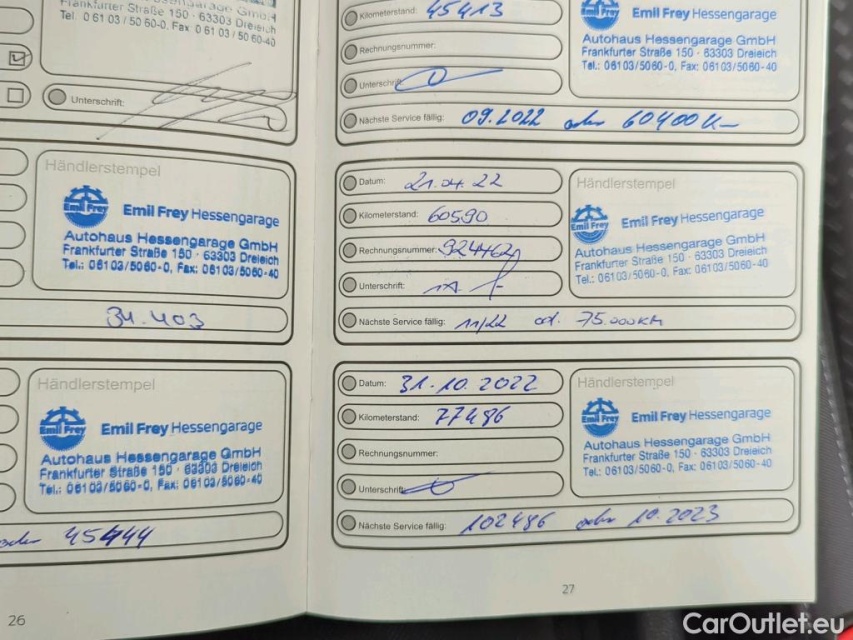 Frankfurter Straße 150 · 63303 Dreieich
Tel. 0 61 03 / 50 60-0, Fax 0 61 03 / 50 60-40
Unterschrift:
Händlerstempel
Emil Frey
Emil Frey Hessengarage
Autohaus Hessengarage GmbH
Frankfurter Straße 150 · 63303 Dreieich
Tel.: 06103/5060-0, Fax: 06103/5060-40
34.403
Händlerstempel
Emil Frey
Emil Frey Hessengarage
Autohaus Hessengarage GmbH
Frankfurter Straße 150 · 63303 Dreieich
Tel.: 06103/5060-0, Fax: 06103/5060-40
oder 45444
26
Kilometerstand: 45413
Rechnungsnummer:
Unterschrift:
Emil Frey Hessengarage
Autohaus Hessengarage GmbH
Frankfurter Straße 150 · 63303 Dreieich
Tel.: 06103/5060-0, Fax: 06103/5060-40
Nächste Service fällig: 09.2022 oder 60400
Datum: 21.04.22
Kilometerstand: 60590
Rechnungsnummer:
Unterschrift:
Händlerstempel
Emil Frey
Emil Frey Hessengarage
Autohaus Hessengarage GmbH
Frankfurter Straße 150 · 63303 Dreieich
Tel.: 06103/5060-0, Fax: 06103/5060-40
Nächste Service fällig: 11/22 od. 75.000KM
Datum: 31.10.2022
Kilometerstand: 77486
Rechnungsnummer:
Unterschrift:
Händlerstempel
Emil Frey
Emil Frey Hessengarage
Autohaus Hessengarage GmbH
Frankfurter Straße 150 · 63303 Dreieich
Tel.: 06103/5060-0, Fax: 06103/5060-40
Nächste Service fällig: 102486 oder 10.2023
27
CarOutlet.eu